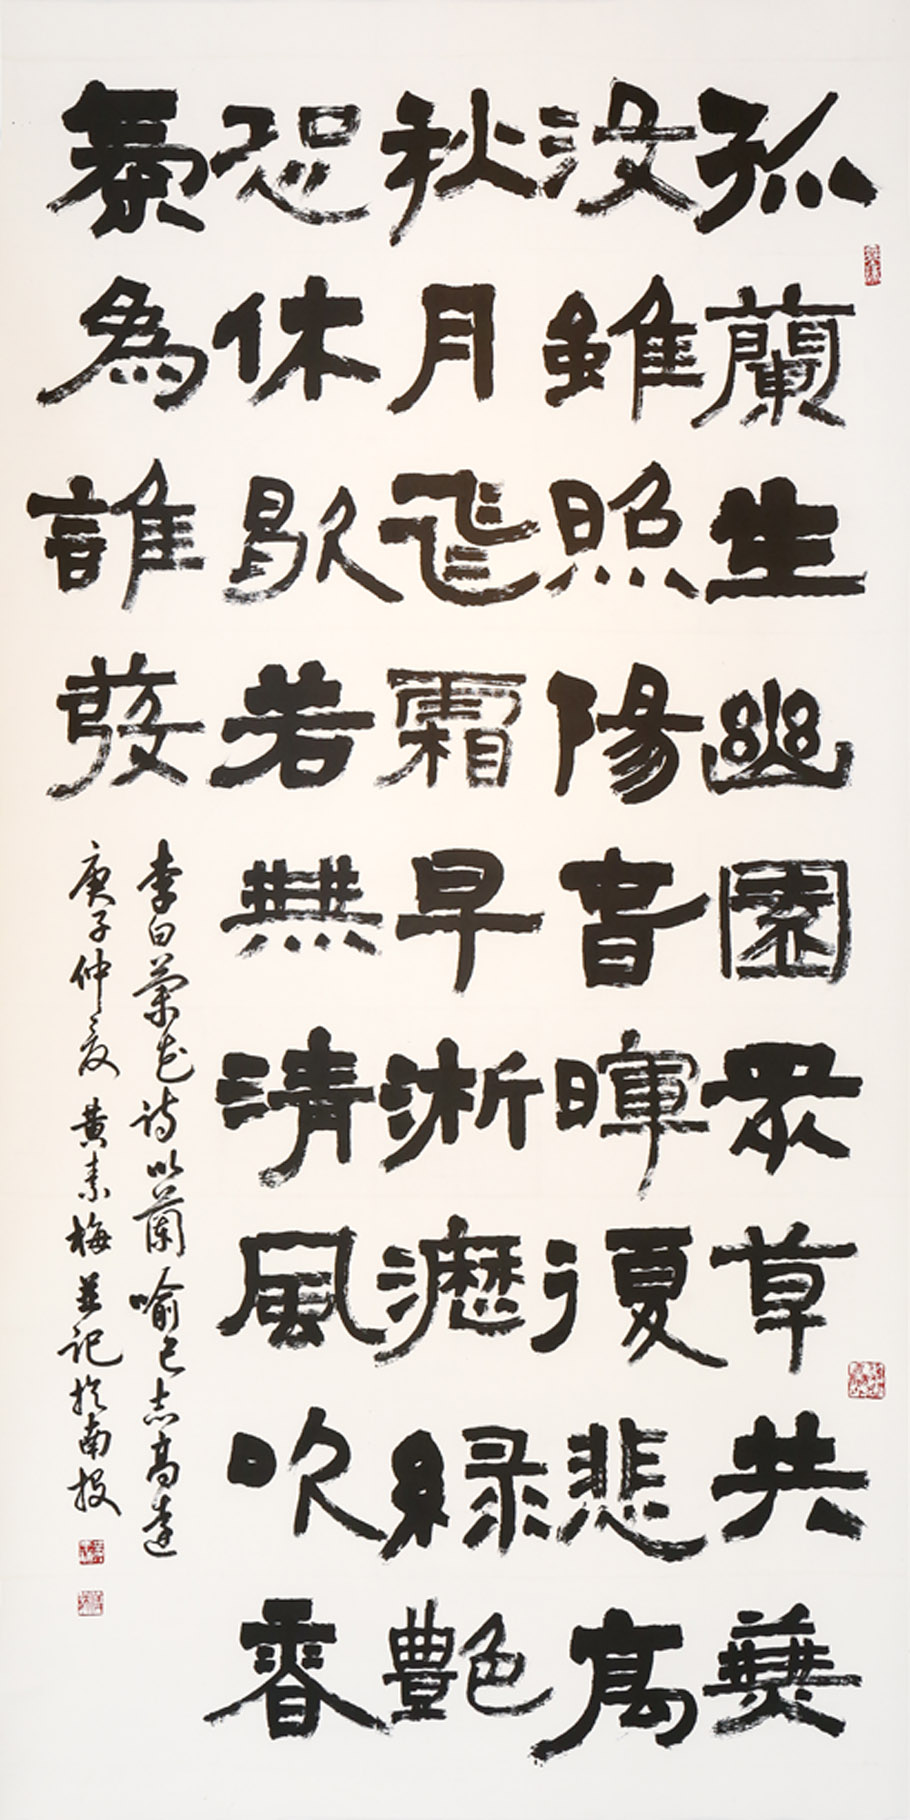 孤蘭生幽園眾草共蕪
沒雖照陽春暉復悲高
秋月飛霜早淅瀝綠艷
恐休歇若無清風吹香
氣為誰發
李白蘭花詩以蘭喻己志高遠
庚子仲夏 黃素梅並記於南投